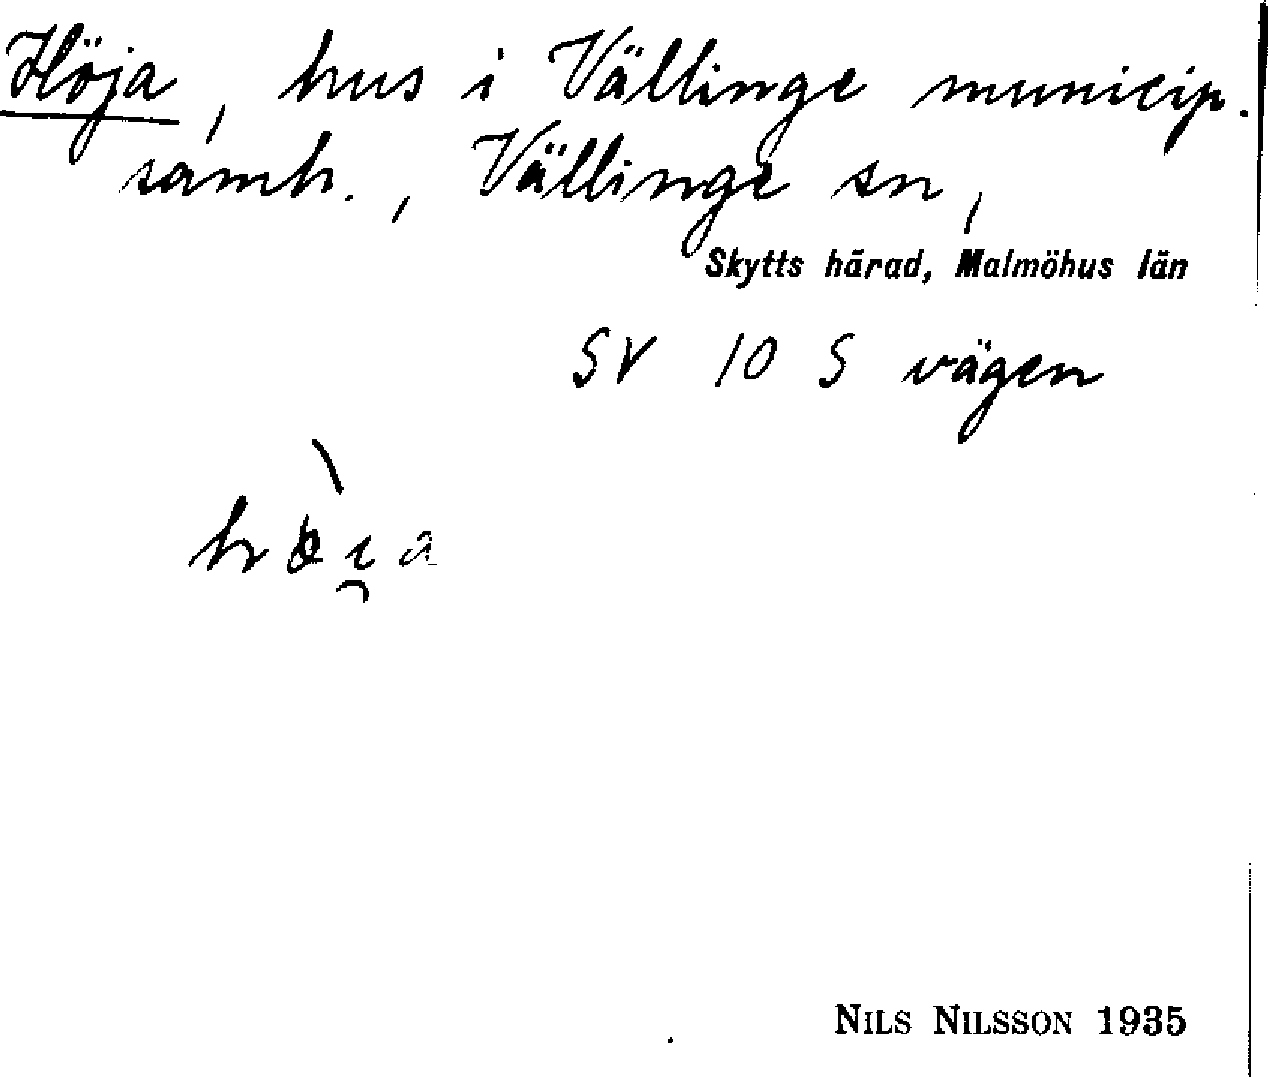 Höja, hus i Vällinge municip.
samh., Vällinge sn,
Skytts härad, Malmöhus län
SV 10 S vägen
NILS NILSSON 1935